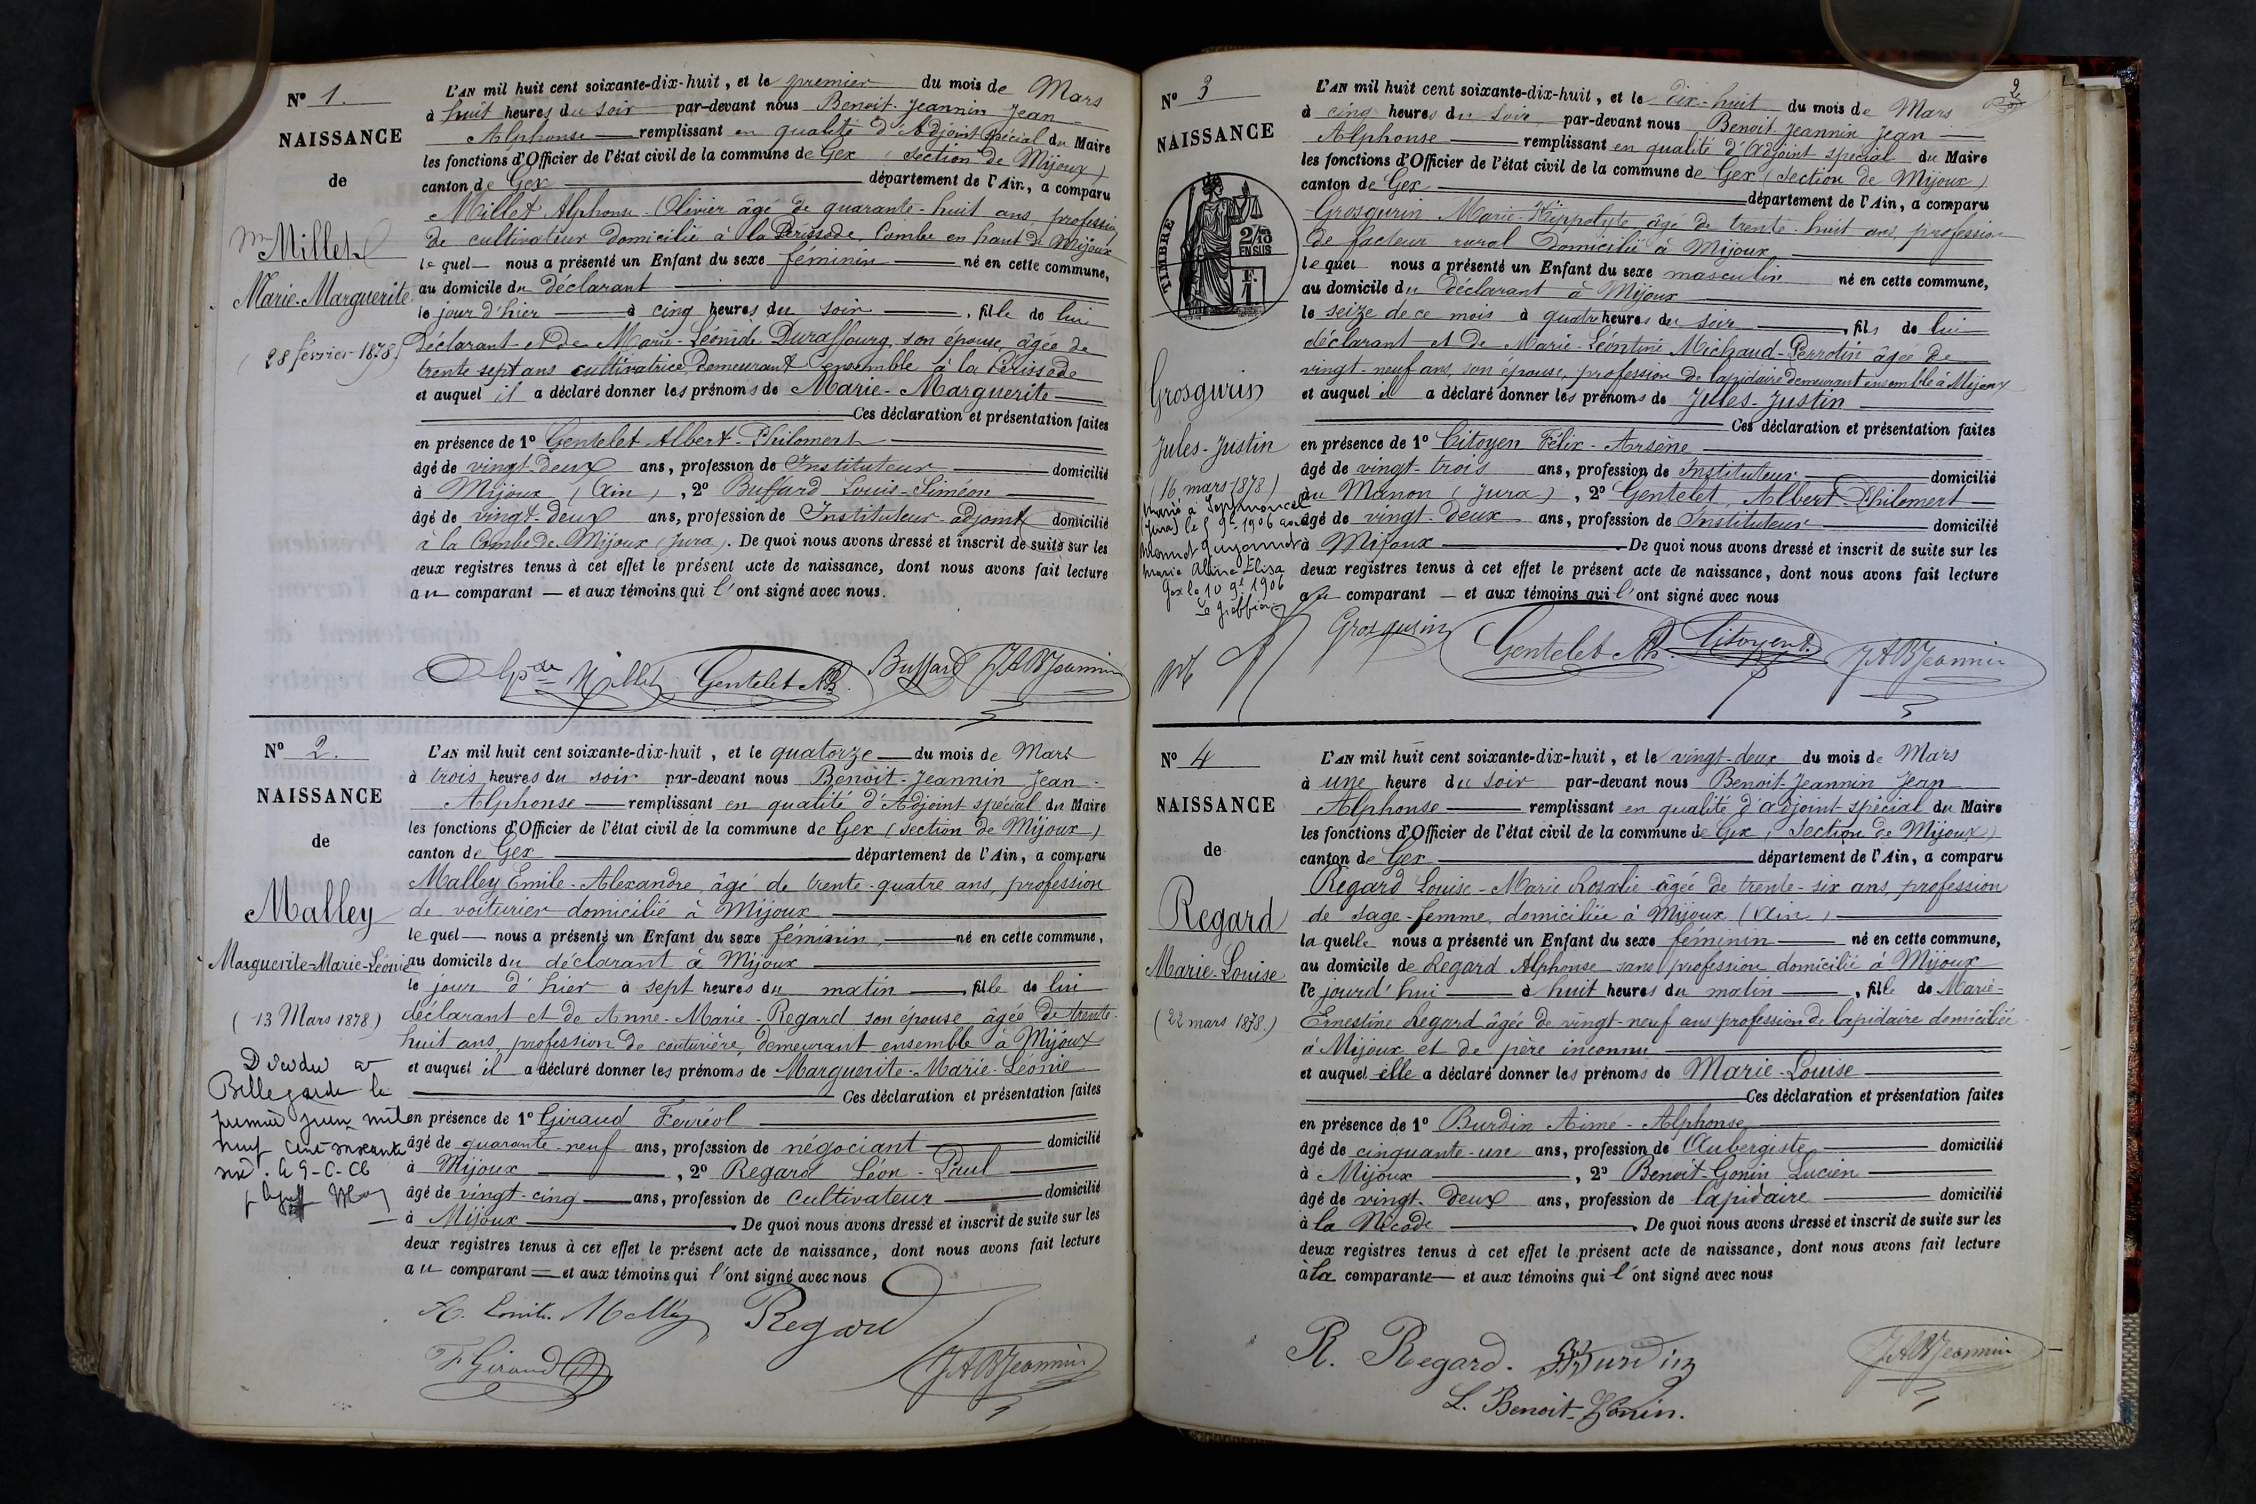 N° 1.
NAISSANCE
de
Millet
Marie-Marguerite
(28 février 1878)
L'AN mil huit cent soixante-dix-huit, et le premier du mois de Mars
à huit heures du soir par-devant nous Benoit-Jeannin Jean-
Alphonse remplissant en qualité d'Adjoint spécial du Maire
les fonctions d'Officier de l'état civil de la commune de Gex (section de Mijoux)
canton de Gex département de l'Ain, a comparu
Millet Alphonse-Olivier âgé de quarante-huit ans profession
de cultivateur domicilié à la Périssode, Combe en haut de Mijoux
le quel nous a présenté un Enfant du sexe féminin né en cette commune,
au domicile du déclarant
le jour d'hier à cinq heures du soir, fille de lui
déclarant et de Marie-Léonide Duraffourg, son épouse, âgée de
trente sept ans cultivatrice demeurant ensemble à la Périssode
et auquel il a déclaré donner les prénoms de Marie-Marguerite
Ces déclaration et présentation faites
en présence de 1° Gentelet Albert-Philomert
âgé de vingt-deux ans, profession de Instituteur domicilié
à Mijoux (Ain), 2° Buffard Louis-Siméon
âgé de vingt-deux ans, profession de Instituteur-adjoint domicilié
à la Combe de Mijoux (Jura). De quoi nous avons dressé et inscrit de suite sur les
deux registres tenus à cet effet le présent acte de naissance, dont nous avons fait lecture
au comparant et aux témoins qui l'ont signé avec nous.
Alp de Millet Gentelet Ab. Buffard JABJeannin
N° 2.
NAISSANCE
de
Malley
Marguerite-Marie-Léonie
(13 Mars 1878)
Décédée à
Bellegarde le
premier juin mil
neuf cent soixante
L'AN mil huit cent soixante-dix-huit, et le quatorze du mois de Mars
à trois heures du soir par-devant nous Benoit-Jeannin Jean-
Alphonse remplissant en qualité d'Adjoint spécial du Maire
les fonctions d'Officier de l'état civil de la commune de Gex (section de Mijoux)
canton de Gex département de l'Ain, a comparu
Malley Emile-Alexandre, âgé de trente-quatre ans, profession
de voiturier domicilié à Mijoux
le quel nous a présenté un Enfant du sexe féminin, né en cette commune,
au domicile du déclarant à Mijoux
le jour d'hier à sept heures du matin, fille de lui
déclarant et de Anne-Marie-Regard son épouse âgée de trente-
huit ans, profession de couturière, demeurant ensemble à Mijoux
et auquel il a déclaré donner les prénoms de Marguerite-Marie-Léonie
Ces déclaration et présentation faites
en présence de 1° Giraud Ferréol
âgé de quarante-neuf ans, profession de négociant domicilié
à Mijoux, 2° Regard Léon-Paul
âgé de vingt-cinq ans, profession de cultivateur domicilié
à Mijoux. De quoi nous avons dressé et inscrit de suite sur les
deux registres tenus à cet effet le présent acte de naissance, dont nous avons fait lecture
au comparant et aux témoins qui l'ont signé avec nous
Malley Regard
F Giraud JABJeannin
2
N° 3
NAISSANCE
TIMBRE
2/10 EN SUS
F. 1.
Grosgurin
Jules-Justin
(16 mars 1878)
Marié à Septmoncel
(Jura) le 5 9bre 1906 avec
Marie Aline Elisa
Gex le 10 9bre 1906
Le greffier
L'AN mil huit cent soixante-dix-huit, et le dix-huit du mois de Mars
à cinq heures du soir par-devant nous Benoit-Jeannin Jean
Alphonse remplissant en qualité d'adjoint spécial du Maire
les fonctions d'Officier de l'état civil de la commune de Gex (section de Mijoux)
canton de Gex département de l'Ain, a comparu
Grosgurin Marie-Hippolyte, âgé de trente-huit ans, profession
de facteur rural domicilié à Mijoux
le quel nous a présenté un Enfant du sexe masculin né en cette commune,
au domicile du déclarant à Mijoux
le seize de ce mois à quatre heures du soir, fils de lui
déclarant et de Marie-Léontine Michaud-Perrotin âgée de
vingt-neuf ans, son épouse, profession de lapidaire demeurant ensemble à Mijoux
et auquel il a déclaré donner les prénoms de Jules-Justin
Ces déclaration et présentation faites
en présence de 1° Citoyen Félix-Arsène
âgé de vingt-trois ans, profession de Instituteur domicilié
au Manon (Jura), 2° Gentelet, Albert Philomert
âgé de vingt-deux ans, profession de Instituteur domicilié
à Mijoux. De quoi nous avons dressé et inscrit de suite sur les
deux registres tenus à cet effet le présent acte de naissance, dont nous avons fait lecture
au comparant et aux témoins qui l'ont signé avec nous
Grosgurin Gentelet Ab. Citoyen JABJeannin
N° 4
NAISSANCE
de
Regard
Marie-Louise
(22 mars 1878.)
L'AN mil huit cent soixante-dix-huit, et le vingt-deux du mois de Mars
à une heure du soir par-devant nous Benoit-Jeannin Jean
Alphonse remplissant en qualité d'adjoint spécial du Maire
les fonctions d'Officier de l'état civil de la commune de Gex (section de Mijoux)
canton de Gex département de l'Ain, a comparu
Regard Louise-Marie Rosalie âgée de trente-six ans, profession
de sage-femme, domiciliée à Mijoux (Ain)
la quelle nous a présenté un Enfant du sexe féminin né en cette commune,
au domicile de Regard Alphonse sans profession domicilié à Mijoux
le jourd'hui à huit heures du matin, fille de Marie-
Ernestine Regard âgée de vingt-neuf ans profession de lapidaire domiciliée
à Mijoux et de père inconnu
et auquel elle a déclaré donner les prénoms de Marie-Louise
Ces déclaration et présentation faites
en présence de 1° Burdin Aimé-Alphonse
âgé de cinquante-un ans, profession de Aubergiste domicilié
à Mijoux, 2° Benoit-Gonin Lucien
âgé de vingt-deux ans, profession de lapidaire domicilié
à la Nicode. De quoi nous avons dressé et inscrit de suite sur les
deux registres tenus à cet effet le présent acte de naissance, dont nous avons fait lecture
à la comparante et aux témoins qui l'ont signé avec nous
R. Regard. Burdin JABJeannin
L. Benoit-Gonin.